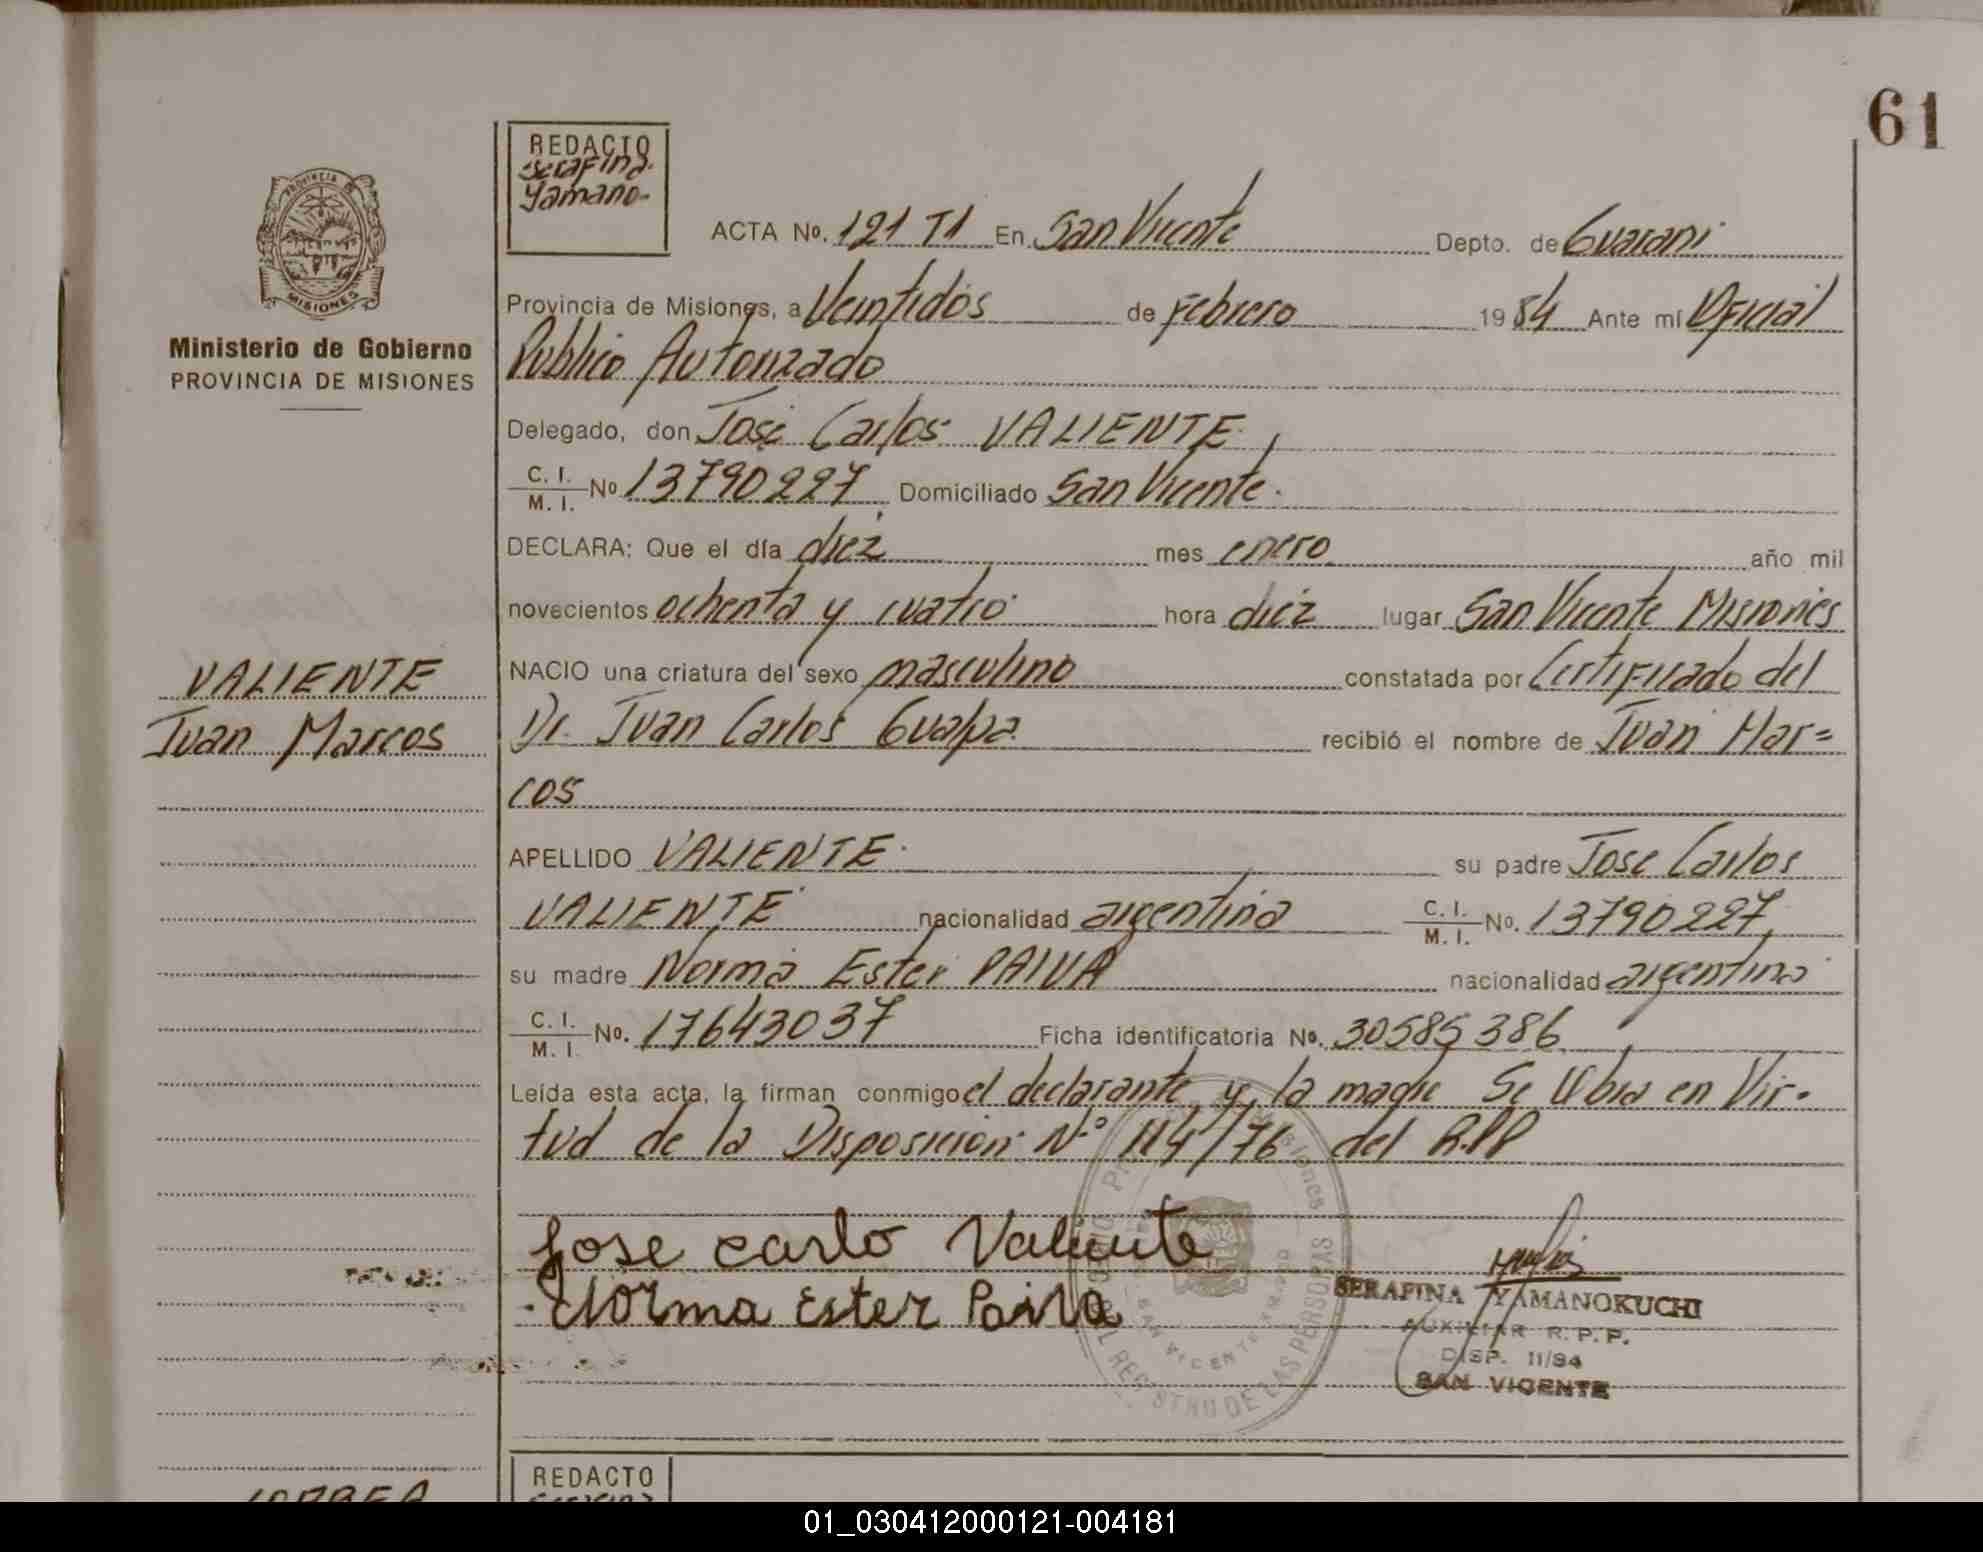 61
REDACTO
Serafina
Yamano-
PROVINCIA DE
MISIONES
Ministerio de Gobierno
PROVINCIA DE MISIONES
ACTA No. 121 T1 En San Vicente Depto. de Guarani
Provincia de Misiones, a Veintidos de Febrero 19 84 Ante mí Oficial
Publico Autorizado
Delegado, don José Carlos VALIENTE,
C. I. / M. I. No 13790227 Domiciliado San Vicente.
DECLARA: Que el día diez mes enero año mil
novecientos ochenta y cuatro hora diez lugar San Vicente Misiones
NACIO una criatura del sexo masculino constatada por Certificado del
Dr. Juan Carlos Gualpa recibió el nombre de Juan Mar=
cos
VALIENTE
Juan Marcos
APELLIDO VALIENTE su padre Jose Carlos
VALIENTE nacionalidad argentina C. I. / M. I. No. 13790227,
su madre Norma Ester PAIVA nacionalidad argentina
C. I. / M. I. No. 17643037 Ficha identificatoria No. 30585386
Leída esta acta, la firman conmigo el declarante y la madre Se en Vir-
tud de la Disposicion Nº 114/76 del R.PP
Jose carlo Valiente
Norma Ester Paiva
REGISTRO DE LAS PERSONAS
SAN VICENTE
SERAFINA YAMANOKUCHI
AUXILIAR R. P. P.
DISP. 11/84
SAN VICENTE
REDACTO
01_030412000121-004181